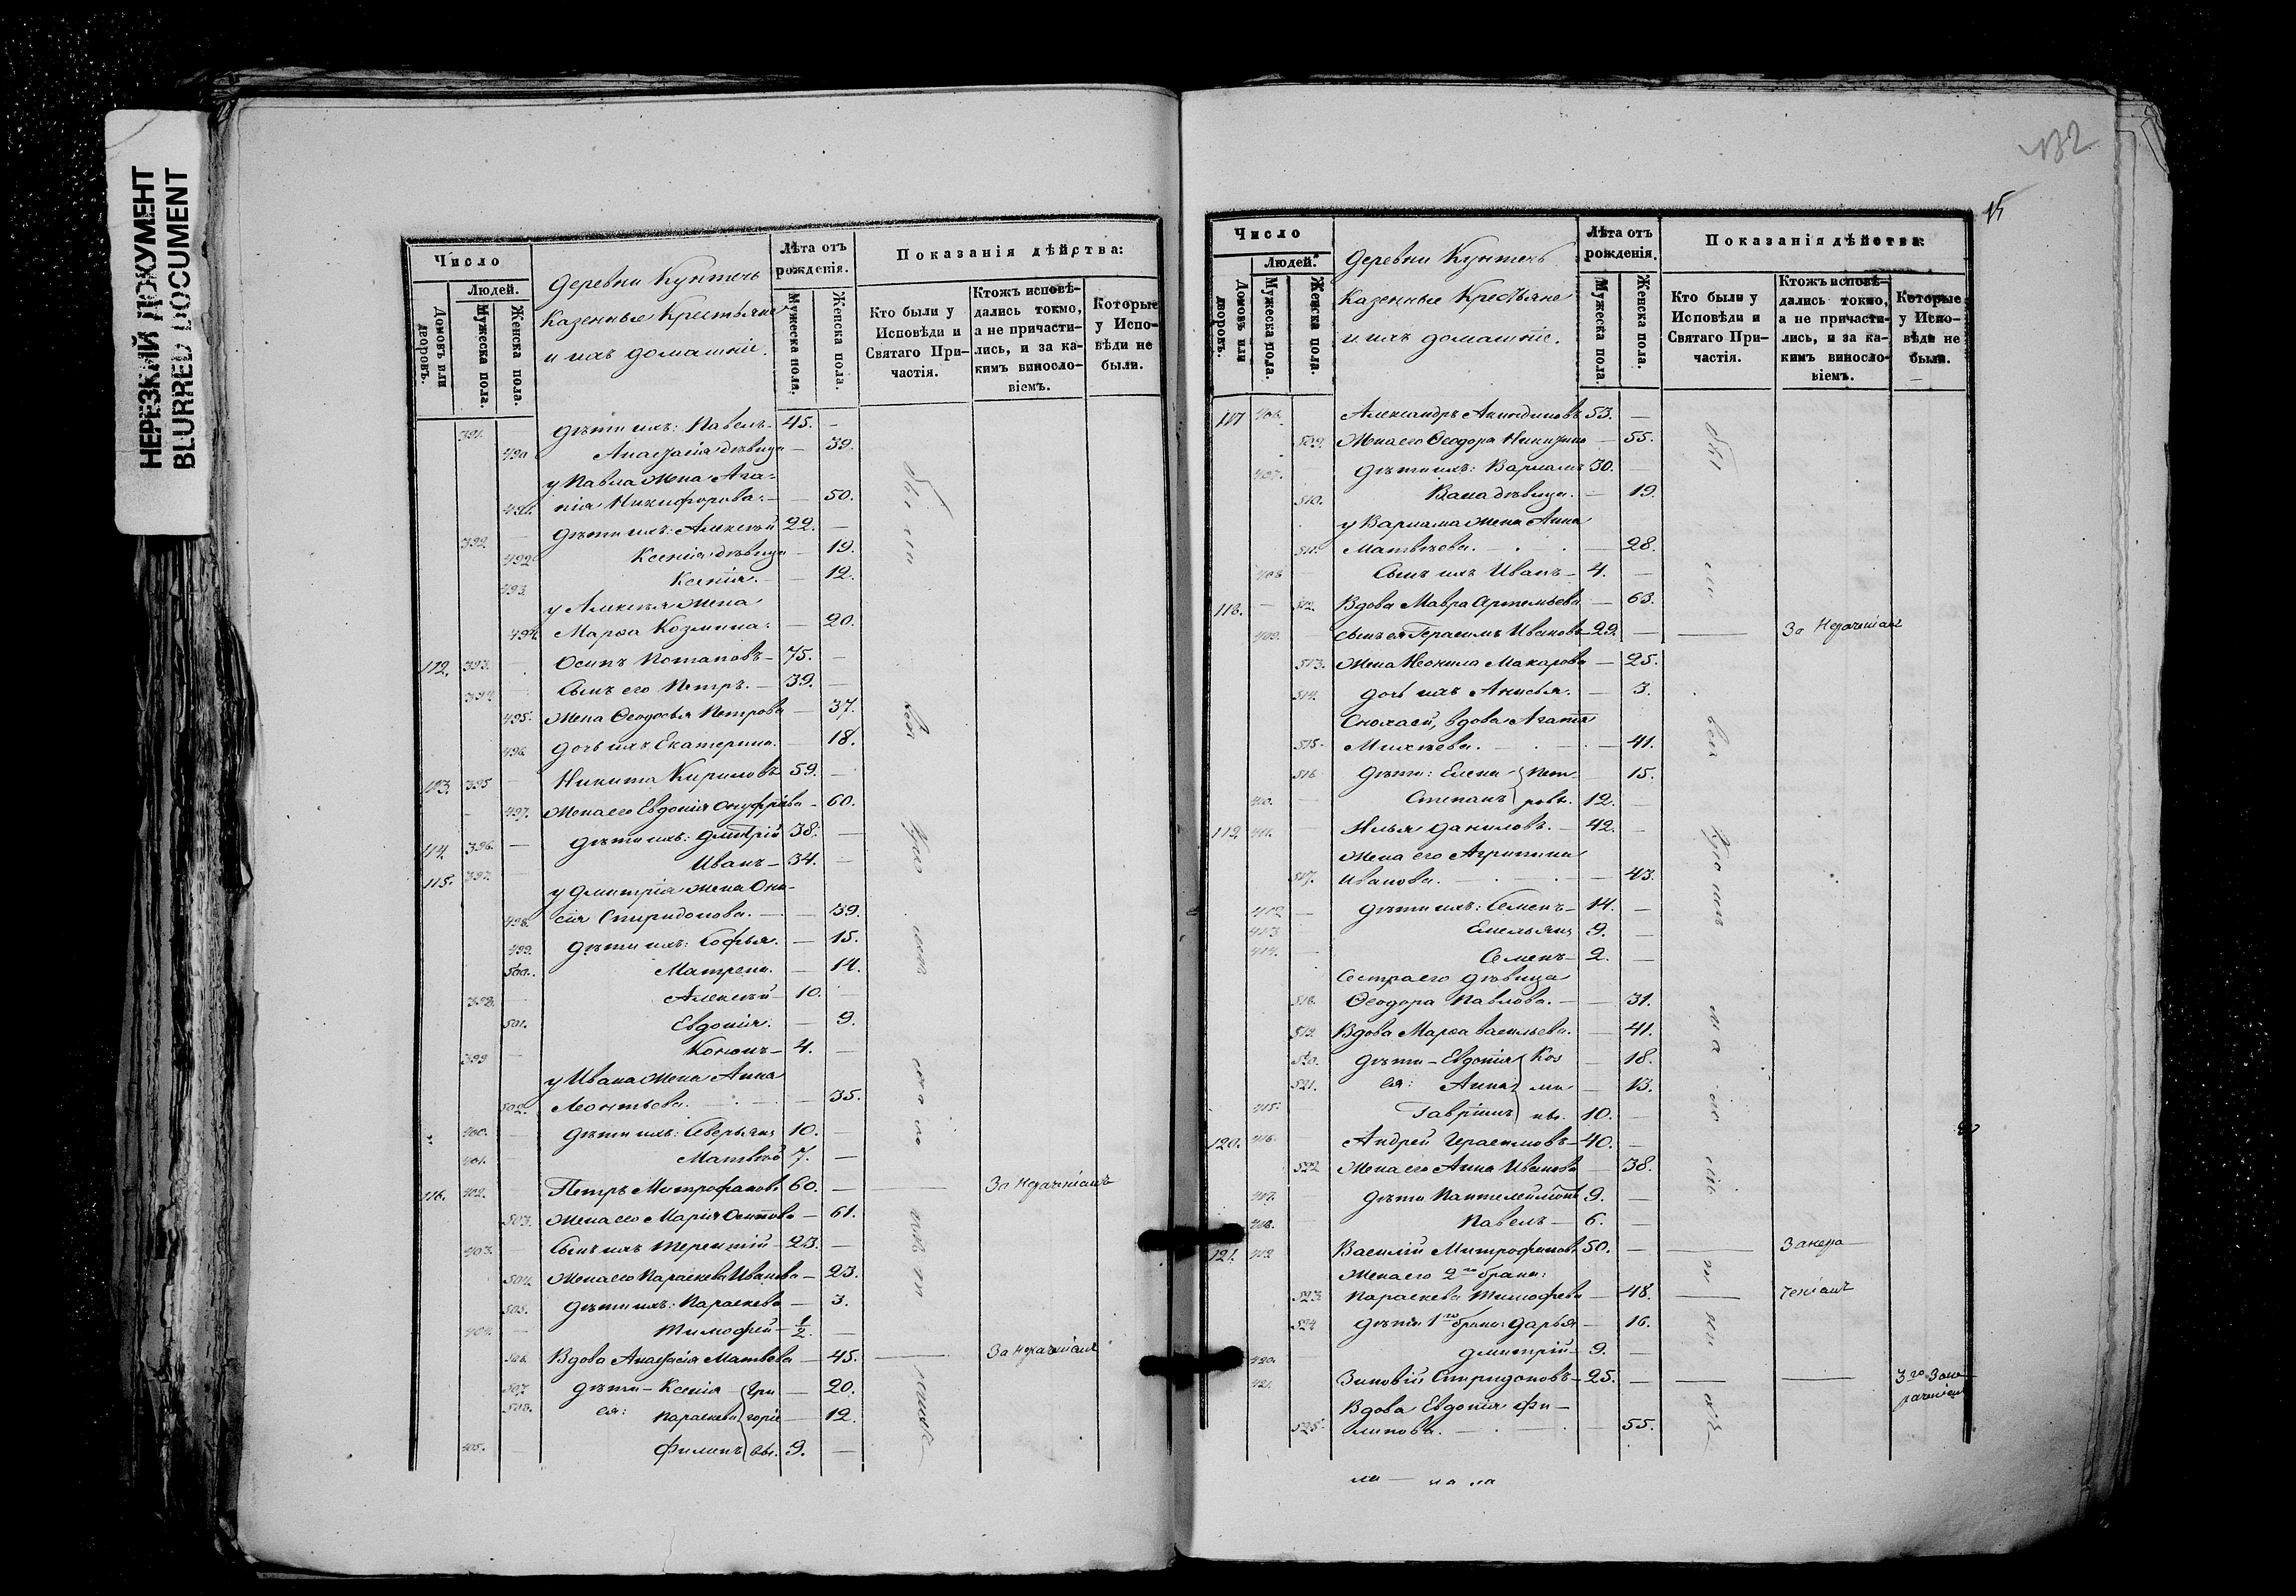 НЕРЕЗКИЙ ДОКУМЕНТ
BLURRED DOCUMENT
Число
Людей.
Домовъ или дворовъ.
Мужеска пола.
Женска пола.
Деревни Кунтечь
Казенные Крестьяне
и ихъ домашніе.
Лѣта отъ рожденія.
Мужеска пола.
Женска пола.
Показанія дѣйства:
Кто были у Исповѣди и Святаго Причастія.
Ктожъ исповѣдались токмо, а не причастились, и за какимъ винословіемъ.
Которые у Исповѣди не были.
391. дѣти ихъ: Павелъ 45. —
490 Анастасія дѣвица — 39.
у Павла жена Ага-
491. пія Никифорова. — 50.
392. дѣти ихъ: Алексѣй 22. —
492 Ксенія дѣвица — 19.
493. Ксенія. — 12.
у Алексѣя жена
494. Марѳа Козмина. — 20.
112. 393. Осипъ Потаповъ — 75. —
394. Сынъ его Петръ. — 39. —
495. Жена Ѳеодосья Петрова — 37.
496. дочь ихъ Екатерина. — 18.
113. 395 Никита Кириловъ 59. —
497. Жена его Евдокія Онуфріева — 60.
114. 396. дѣти ихъ: Дмитрій 38. —
115. 397. Иванъ — 34. —
у Дмитрія жена Они-
498. сія Спиридонова. — 39.
499. дѣти ихъ: Софья. — 15.
500. Матрена. — 14.
398. Алексѣй — 10. —
501. Евдокія. — 9.
399 Кононъ — 4. —
у Ивана жена Анна
502. Леонтьева. — 35.
400. дѣти ихъ: Аверьянъ 10. —
401. Матвѣй 7. —
116. 402. Петръ Митрофановъ 60. — — За нераченіемъ
503. Жена его Марія Осипова — 61.
403. Сынъ ихъ Терентій — 23. —
504. Жена его Параскева Иванова — 23.
505. дѣти ихъ: Параскева — 3.
404. Тимофей — ½. —
506. Вдова Анастасія Матвѣева — 45. — За нераченіемъ
507 дѣти — Ксенія Гри — 20.
508. ея: Параскева горіе — 12.
405. Филипъ вы. 9. —
132
15
Число
Людей.
Домовъ или дворовъ.
Мужеска пола.
Женска пола.
Деревни Кунтечь
Казенные Крестьяне
и ихъ домашніе.
Лѣта отъ рожденія.
Мужеска пола.
Женска пола.
Показанія дѣйства:
Кто были у Исповѣди и Святаго Причастія.
Ктожъ исповѣдались токмо, а не причастились, и за какимъ винословіемъ.
Которые у Исповѣди не были.
117 406. Александръ Акиндиновъ 53. —
509. Жена его Ѳеодора — 55.
407. дѣти ихъ: Варламъ 30. —
510. дѣвица. — 19.
у Варлама жена Анна
511. Матвѣева. — 28.
408 Сынъ ихъ Иванъ — 4. —
118. — 512. Вдова Мавра Артемьева — 63.
409. сынъ ея Герасимъ Ивановъ — 29. — — За нераченіемъ
513. Жена Неонила Макарова — 25.
514. дочь ихъ Анисья. — 3.
Сноха ей, вдова Агапія
515. Михѣева. — 41.
516 дѣти: Елена Пет — 15.
410. Степанъ ровы. 12. —
119. 411. Илья Даниловъ. — 42. —
Жена его Агрипина
517. Иванова. — 43.
412 дѣти ихъ: Семенъ — 14. —
413 Емельянъ 9. —
414. Семенъ — 2. —
Сестра его дѣвица
518. Ѳеодора Павлова. — 31.
519. Вдова Марѳа Васильева. — 41.
520. дѣти — Евдокія Коз — 18.
521. ея: Анна ми — 13.
415. Гавріилъ ны. 10. —
120. 416. Андрей Герасимовъ — 40. —
522 Жена его Анна Иванова — 38.
417. дѣти Пантелеймонъ 9. —
418. Павелъ — 6. —
121. 419 Василій Митрофановъ 50. — — За нера
Жена его 2го брака:
523. Параскева Тимофеева — 48. — ченіемъ
524 дѣти 1го брака: Дарья — 16.
420. Дмитрій — 9. —
421. Зиновій Спиридоновъ — 25. — — — 3го За не
раченіемъ
Вдова Евдокія Фи —
525. липова. — 55.